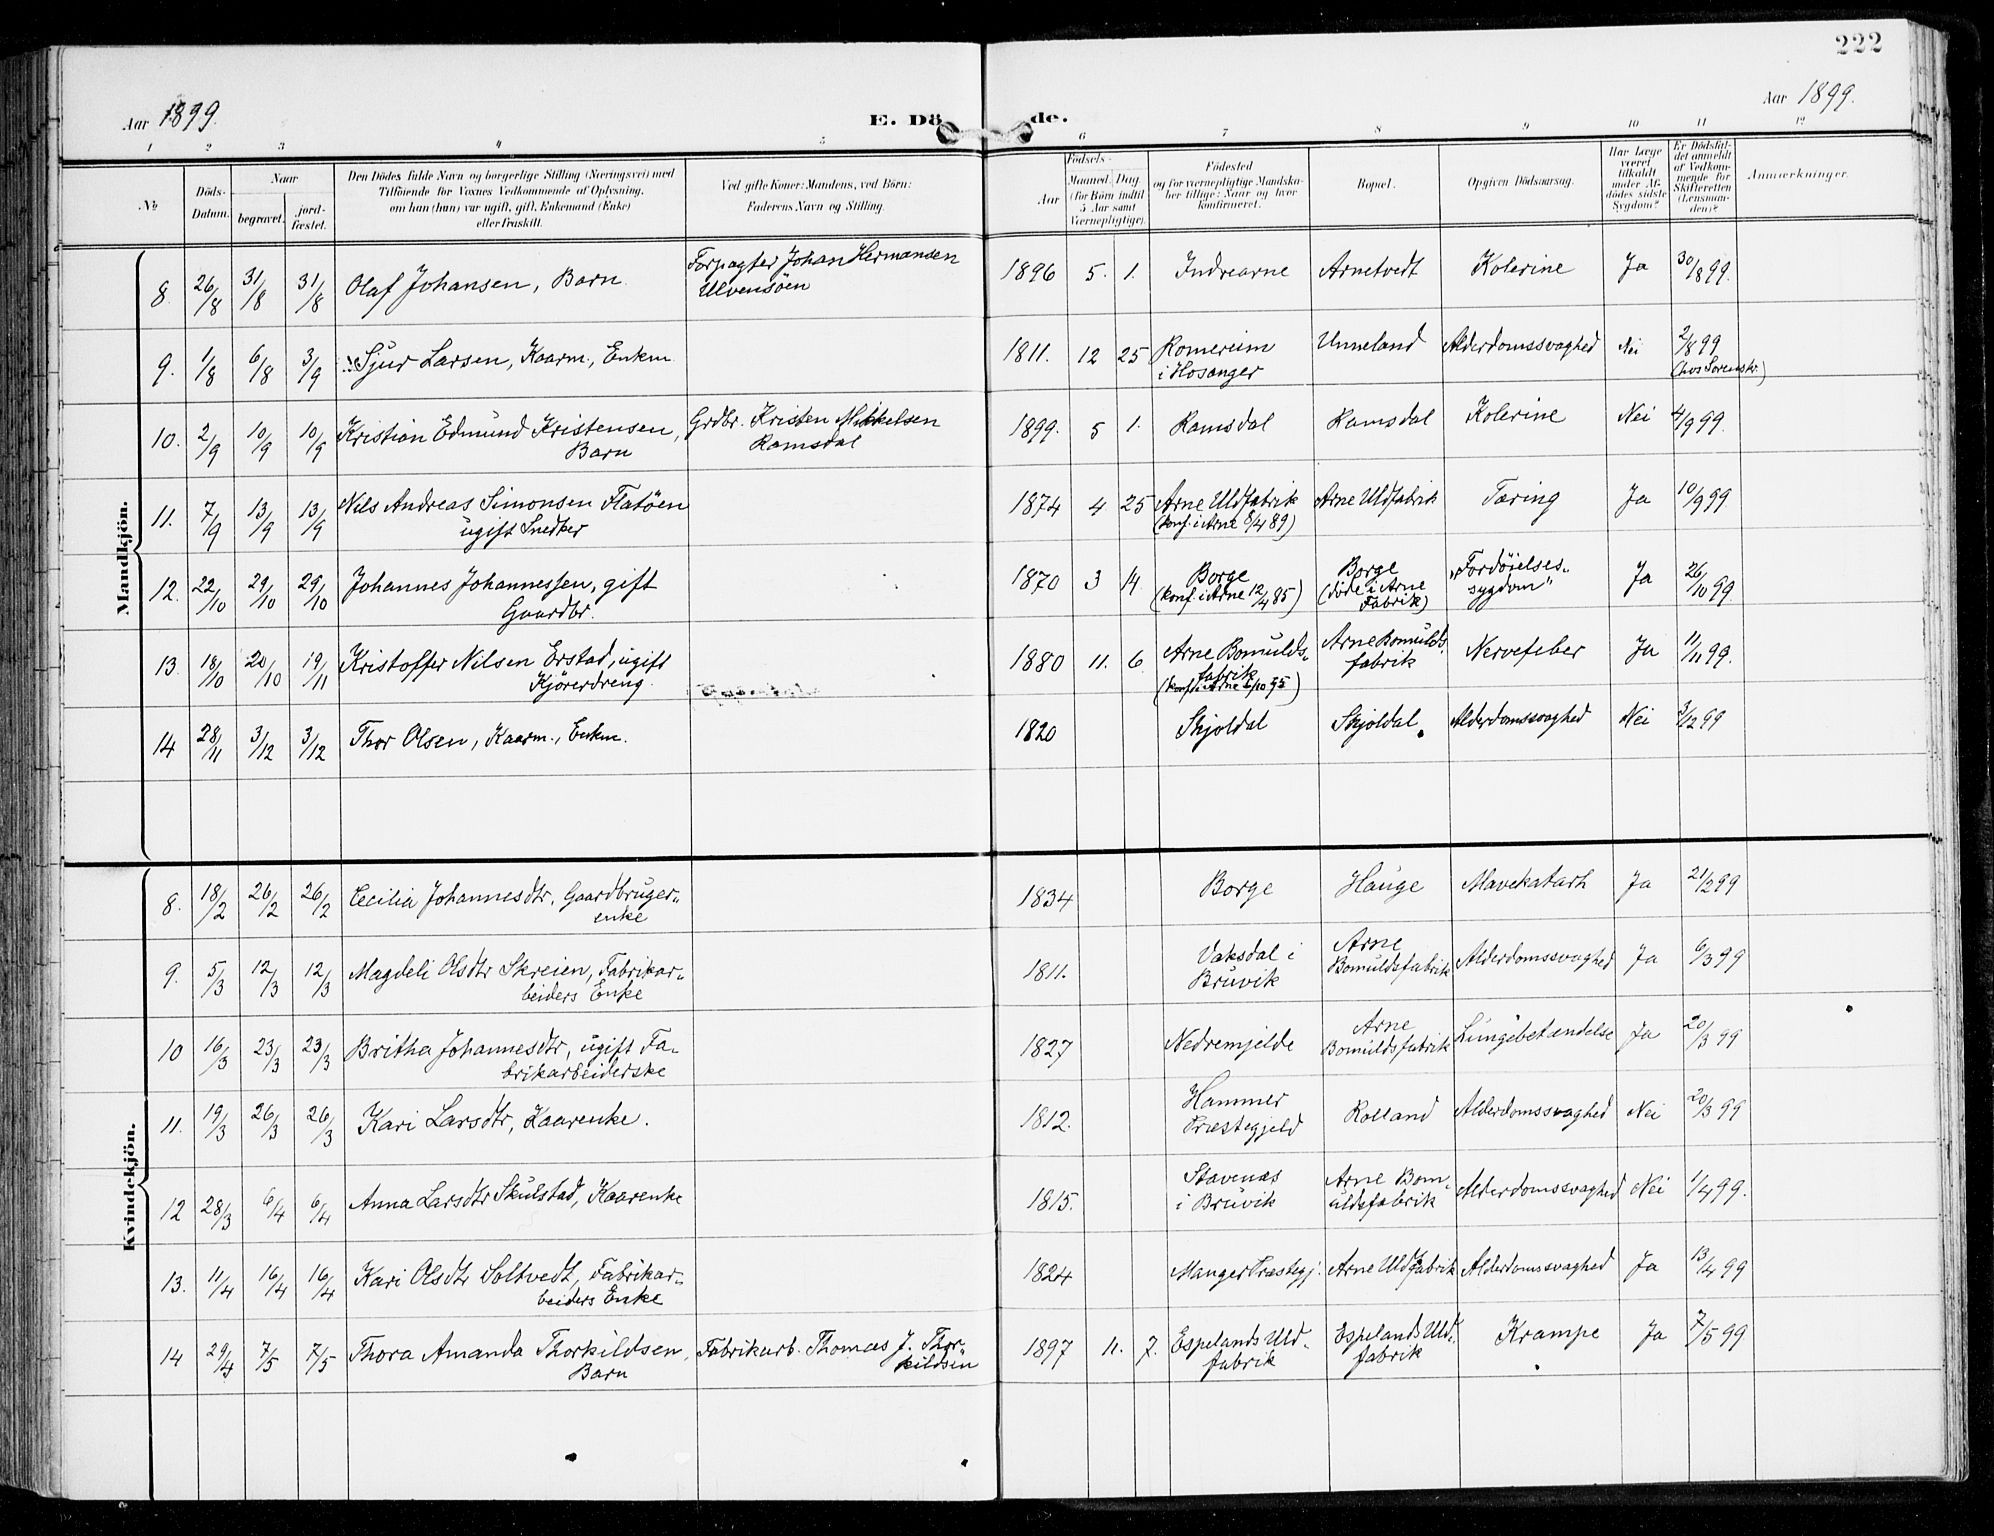 222
Aar 1899.
E. Dö de.
Aar 1899.
1 2 3 4 5 6 7 8 9 10 11 12
№
Döds-Datum.
Naar
begravet.
jord-fæstet.
Den Dödes fulde Navn og borgerlige Stilling (Næringsvei) med
Tilföiende for Voxnes Vedkommende af Oplysning,
om han (hun) var ugift, gift, Enkemand (Enke)
eller fraskilt.
Ved gifte Koner: Mandens, ved Börn:
Faderens Navn og Stilling.
Födsels-
Aar
Maaned. Dag.
(for Börn indtil
5 Aar samt
Værnepligtige).
Födested
og for værnepligtige Mandska-
ber tillige: Naar og hvor
konfirmeret.
Bopæl.
Opgiven Dödsaarsag.
Har Læge
været
tilkaldt
under Af-
dödes sidste
Sygdom?
Er Dödsfal-
det anmeldt
af Vedkom-
mende for
Skifteretten
(Lensman-
den)?
Anmærkninger.
Mandkjön.
8. 26/8 31/8 31/8 Olaf Johansen, Barn Forpagter Johan Hermansen 1896 5. 1. Indrearne Arnetvedt Kolerine Ja 30/8 99.
Ulvensöen
9. 1/8 6/8 3/9 Sjur Larsen, Kaarm., Enkm. 1811. 12 25 Romereim Unneland Alderdomssvaghed Nei 2/8 99
i Hosanger (hos Sorenskr.)
10. 2/9 10/9 10/9 Kristian Edmund Kristensen, Grdbr. Kristen Mikkelsen 1899. 5 1. Ramsdal Ramsdal Kolerine Nei 4/9 99.
Barn Ramsdal
11. 7/9 13/9 13/9 Nils Andreas Simonsen Flatöen 1874 4 25 Arne Uldfabrik Arne Uldfabrik Tæring Ja 10/9 99
ugift Snedker (konf. i Arne 8/4 89)
12. 22/10 29/10 29/10 Johannes Johannessen, gift 1870 3 14 Borge Borge "Fordöielses- Ja 26/10 99.
Gaardbr. (konf. i Arne 12/4 85) (döde i Arne sygdom"
Fabrik)
13 18/10 20/10 19/11 Kristoffer Nilsen Erstad, ugift 1880 11. 6. Arne Bomulds- Arne Bomulds- Nervefeber Ja 11/11 99.
Kjörerdreng. fabrik fabrik
(konf. i Arne 95)
14 28/11 3/12 3/12 Thor Olsen, Kaarm., Enkm. 1820 Skjoldal Skjoldal Alderdomssvaghed Nei 3/12 99
Kvindekjön.
8. 18/2 26/2 26/2 Cecilia Johannesdtr, Gaardbruger- 1834 Borge Hauge Mavekatarh Ja 21/2 99
enke
9. 5/3 12/3 12/3 Magdeli Olsdtr Skreien, Fabrikar- 1811. Vaksdal i Arne Alderdomssvaghed Ja 6/3 99
beiders Enke Bruvik Bomuldsfabrik
10 16/3 23/3 23/3 Britha Johannesdtr, ugift Fa- 1827 Nedremjelde Arne Lungebetændelse Ja 20/3 99
brikarbeiderske Bomuldsfabrik
11. 19/3 26/3 26/3 Kari Larsdtr, Kaarenke. 1812. Hammer Rolland Alderdomssvaghed Nei 20/3 99
Præstegjeld
12 28/3 6/4 6/4 Anna Larsdtr Skulstad, Kaarenke 1815. Stavenæs Arne Bom- Alderdomssvaghed Nei 1/4 99.
i Bruvik uldsfabrik
13. 11/4 16/4 16/4 Kari Olsdtr Soltvedt, Fabrikar- 1824 Manger Præstegj. Arne Uldfabrik Alderdomssvaghed Ja 13/4 99
beiders Enke
14 29/4 7/5 7/5 Thora Amanda Thorkildsen, Fabrikarb. Thomas J. Thor- 1897 11. 7. Espelands Uld- Espelands Uld- Krampe Ja 7/5 99
Barn kildsen fabrik fabrik